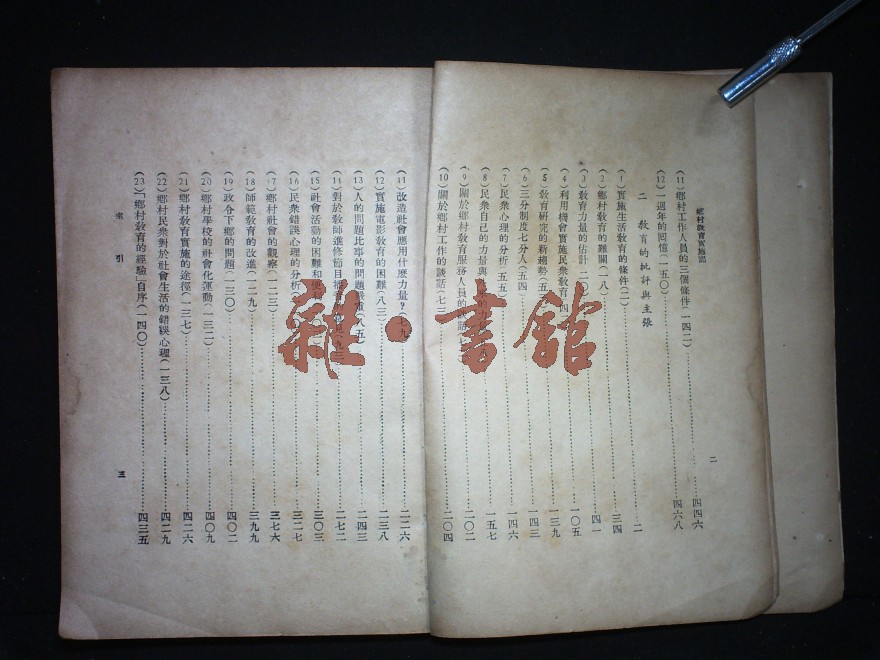 鄉村教育實驗記
二
(11)鄉村工作人員的三個條件(一四二)……四四六
(12)一週年的回憶(一五〇)……四六八
二 教育的批評與主張
(1)實施生活教育的條件(二)……二
(2)鄉村教育的難關(一八)……三四
(3)教育力量的估計(二)……四一
(4)利用機會實施民衆教育(四……一〇五
(5)教育研究的新趨勢(五……一三九
(6)三分制度七分人(五四)……一四三
(7)民衆心理的分析(五五)……一四六
(8)民衆自己的力量與……一五七
(9)關於鄉村教育服務人員的……二〇二
(10)關於鄉村工作的談話(七三……二〇四
(11)改造社會應用什麼力量?(七九……二二六
(12)實施電影教育的困難(八三)……二三八
(13)人的問題比事的問題嚴重(八五)……二四三
(14)對於教師進修節目……二七二
(15)社會活動的困難和便利……三〇三
(16)民衆錯誤心理的分析……三二七
(17)鄉村社會的觀察(一二三)……三七六
(18)師範教育的改進(一二九)……三九九
(19)政令下鄉的問題(一三〇)……四〇二
(20)鄉村學校的社會化運動(一三二)……四〇九
(21)鄉村教育實施的途徑(一三七)……四二六
(22)鄉村民衆對於社會生活的錯誤心理(一三八)……四二九
(23)「鄉村教育的經驗」自序(一四〇)……四三五
索引
三
雜·書館